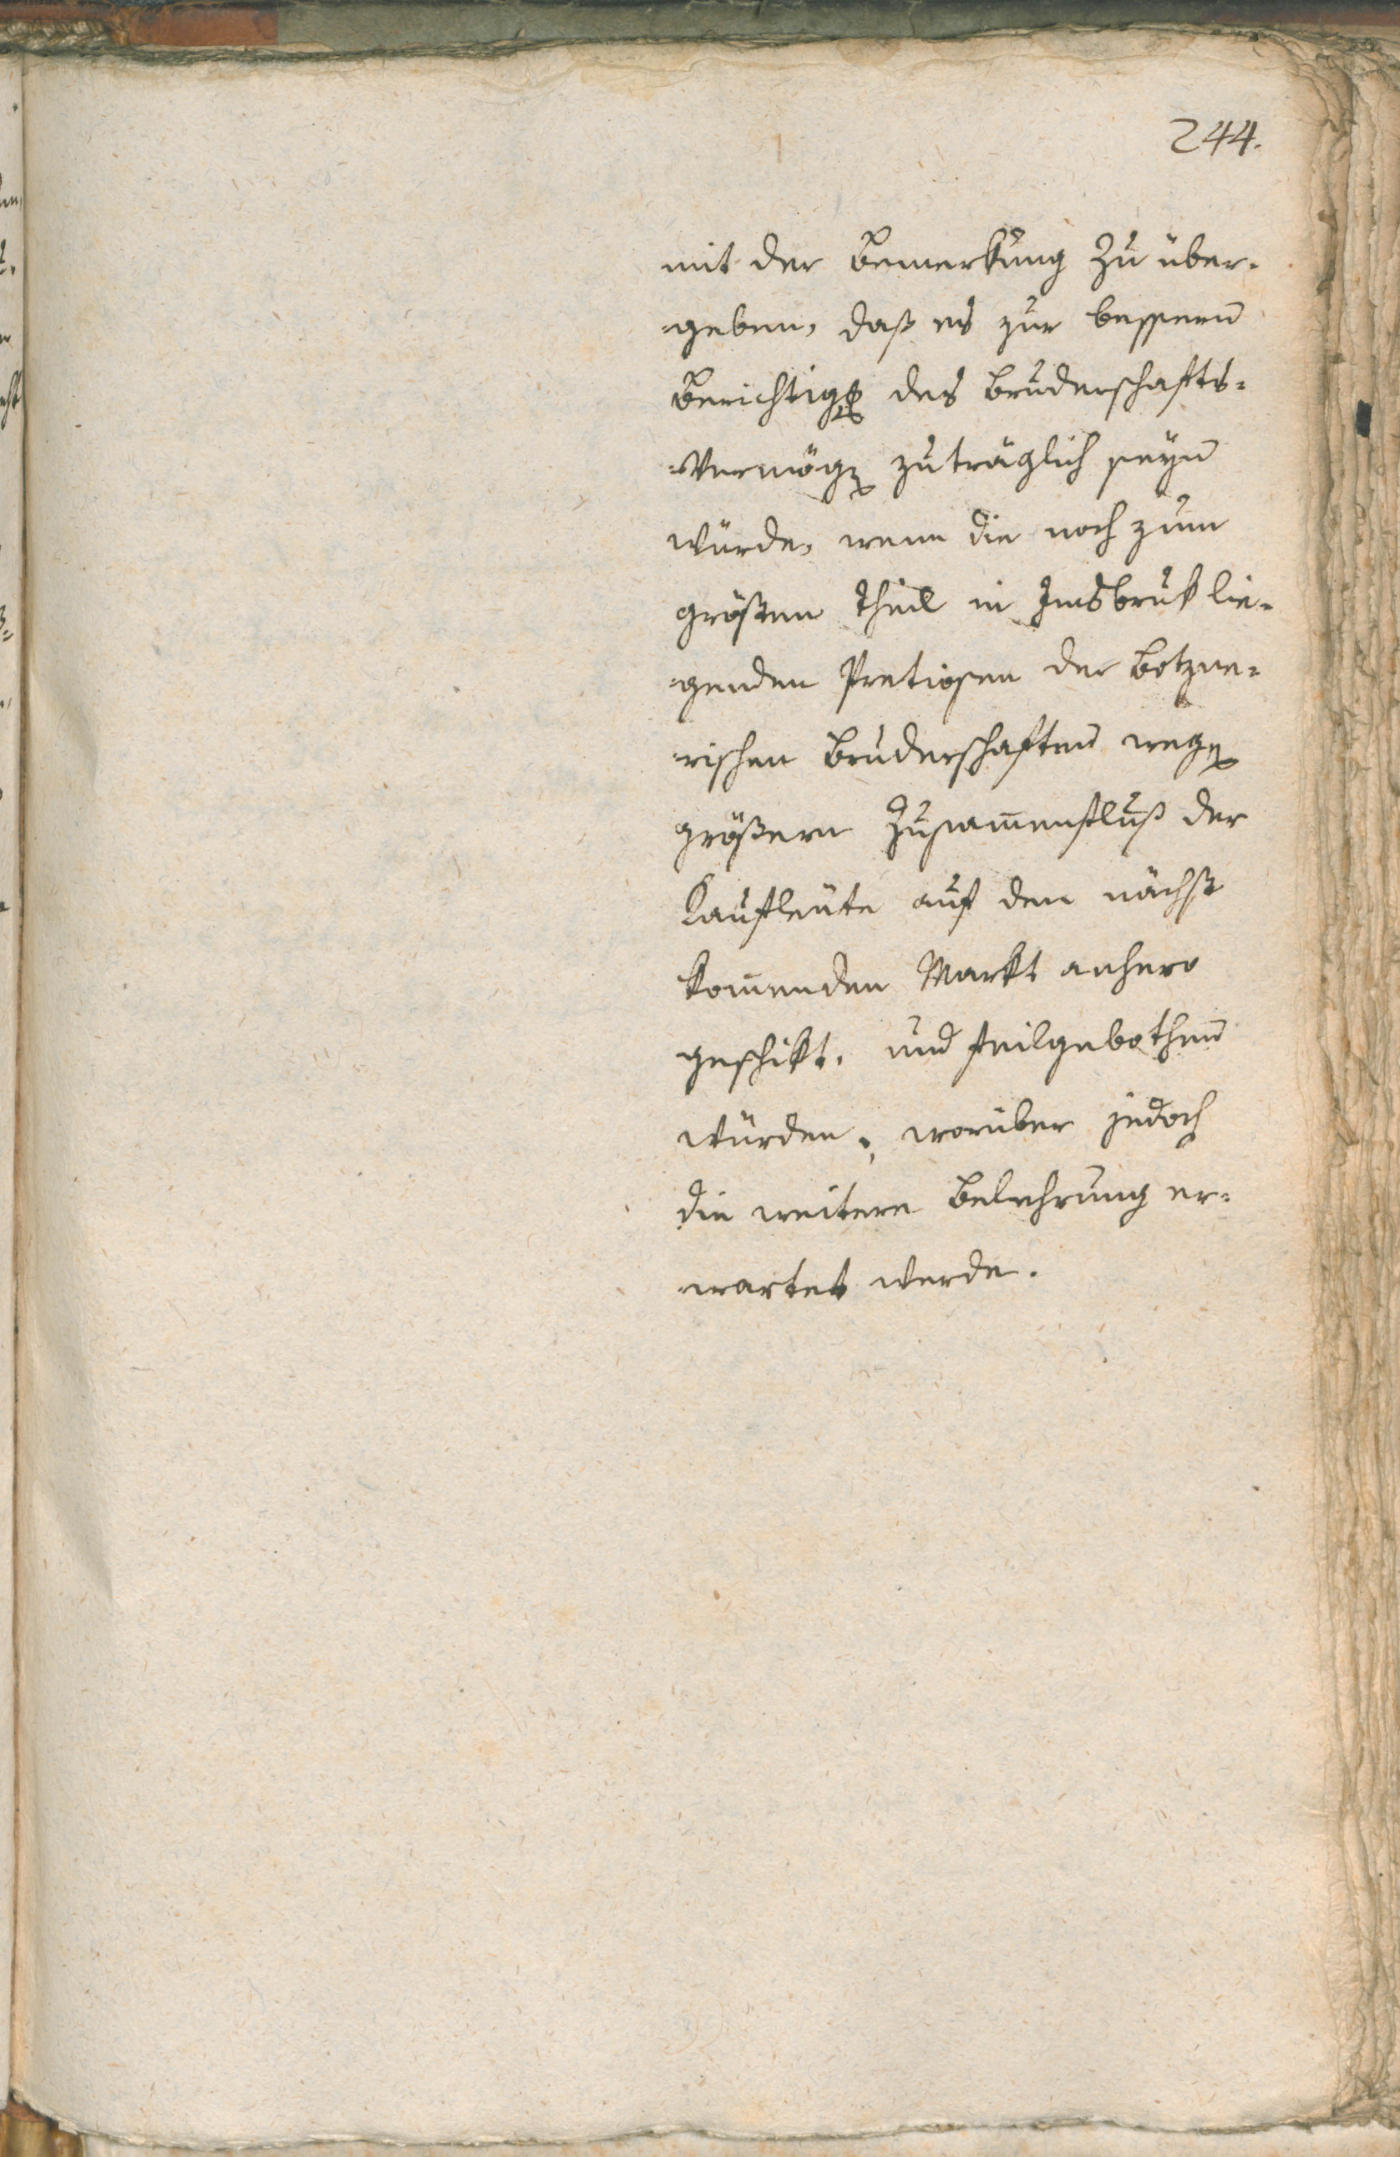 244.
mit der Bemerkung zu über-
geben, daß es zur bessern
Berichtigg des Bruderschafts-
Vermögens zuträglich seyn
würde, wenn die noch zum
größten Theil in Insbruk lie-
genden Pretiosen der Botzne-
rischen Bruderschaften wegen
größern Zusammenfluß der
Kaufleute auf den nächst
kommenden Markt anhero
geschikt, und feilgebothen
würden, worüber jedoch
die weitere Belehrung er-
wartet werde.